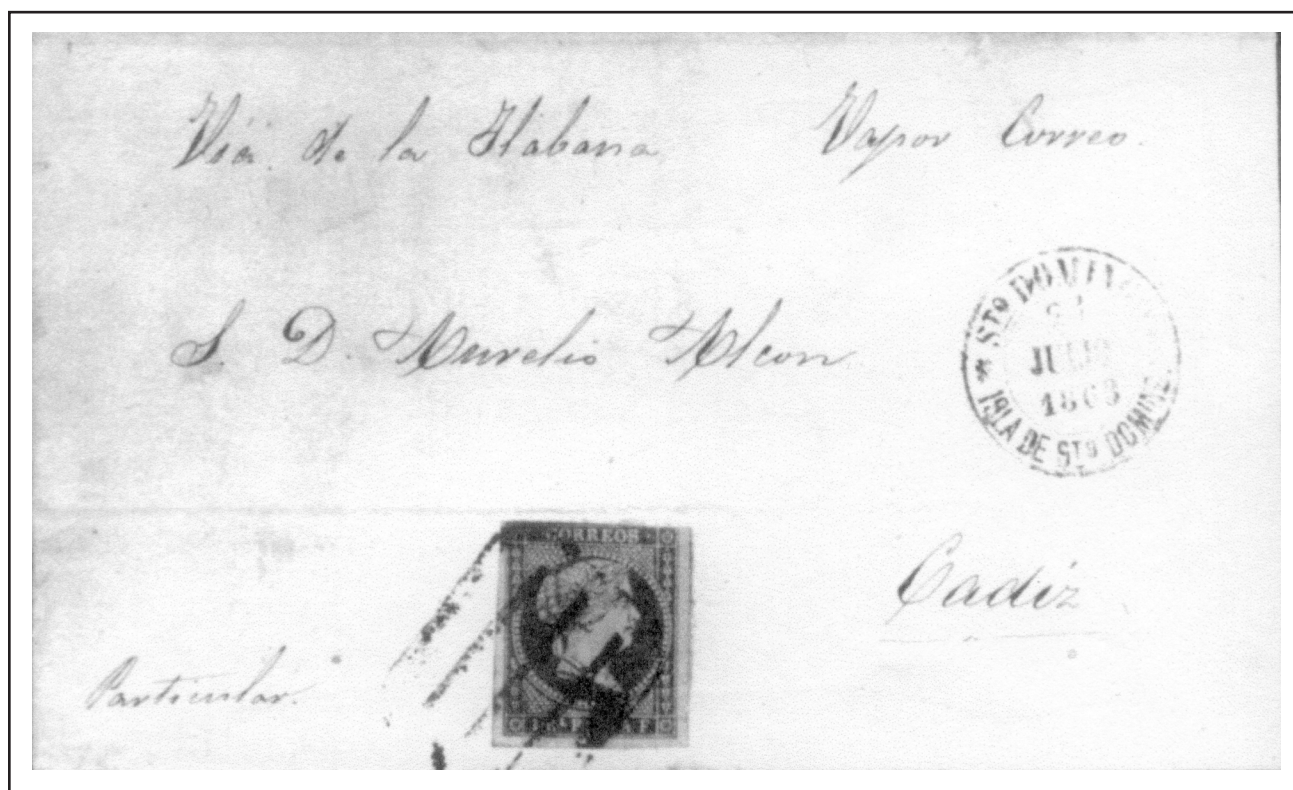 Via de la Habana Vapor Correo.
S. D. Aurelio Alcon
STO DOMINGO
JULIO
1863
ISLA DE STO DOMINGO.
CORREOS
PLATA F
Cadiz
Particular.